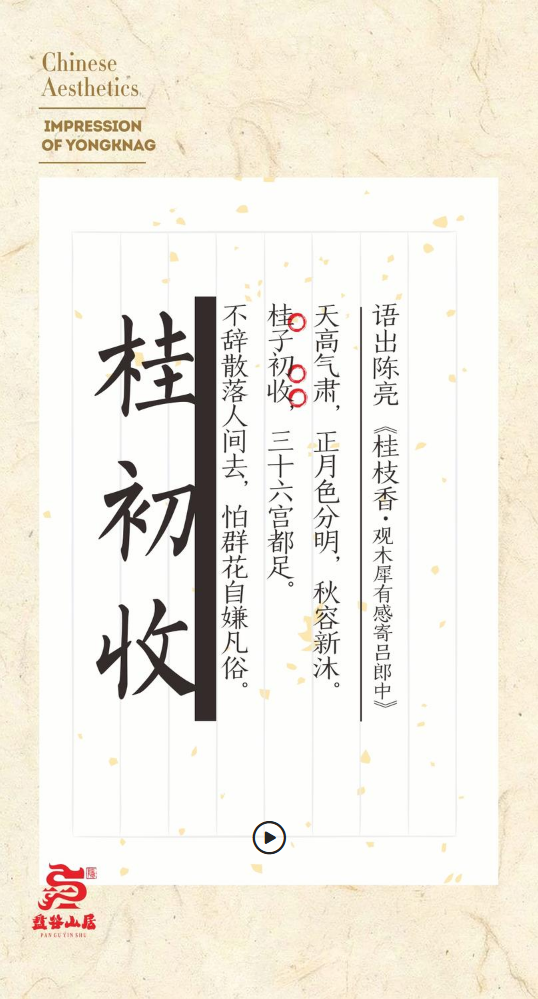 Chinese
Aesthetics
IMPRESSION
OF YONGKNAG
语出陈亮《桂枝香·观木犀有感寄吕郎中》
天高气肃，正月色分明，秋容新沐。
桂子初收，三十六宫都足。
不辞散落人间去，怕群花自嫌凡俗。
桂初收
盘谷山居
PAN GU YIN SHU